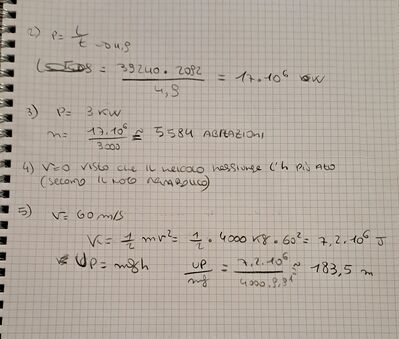 2) P = L/t → 4,9
= 39240 · 2092 / 4,9 = 17·10⁶ W
3) P = 3 KW
n = 17·10⁶ / 3000 ≈ 5584 ABITAZIONI
4) V=0 VISTO CHE IL VEICOLO RAGGIUNGE L'h PIÙ ALTO
(SECONDO IL MOTO PARABOLICO)
5) V = 60 m/s
K = 1/2 mv² = 1/2 · 4000 Kg · 60² = 7,2·10⁶ J
UP = mgh UP/mg = 7,2·10⁶ / 4000·9,81 ≈ 183,5 m